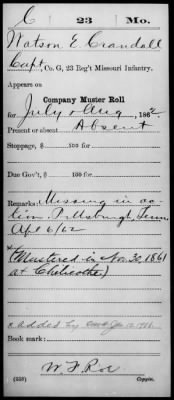 C 23 Mo.
Watson E. Crandall
Capt, Co. G, 23 Reg't Missouri Infantry.
Appears on
Company Muster Roll
for July & Aug, 1862.
Present or absent Absent
Stoppage, $ 100 for
Due Gov't, $ 100 for
Remarks: Missing in ac-
tion Pittsburgh, Tenn
Apl 6/62
(Mustered in Nov. 30, 1861
at Chelicothe.)
x added by
Book mark:
W. F. Roe
(358) Copyist.